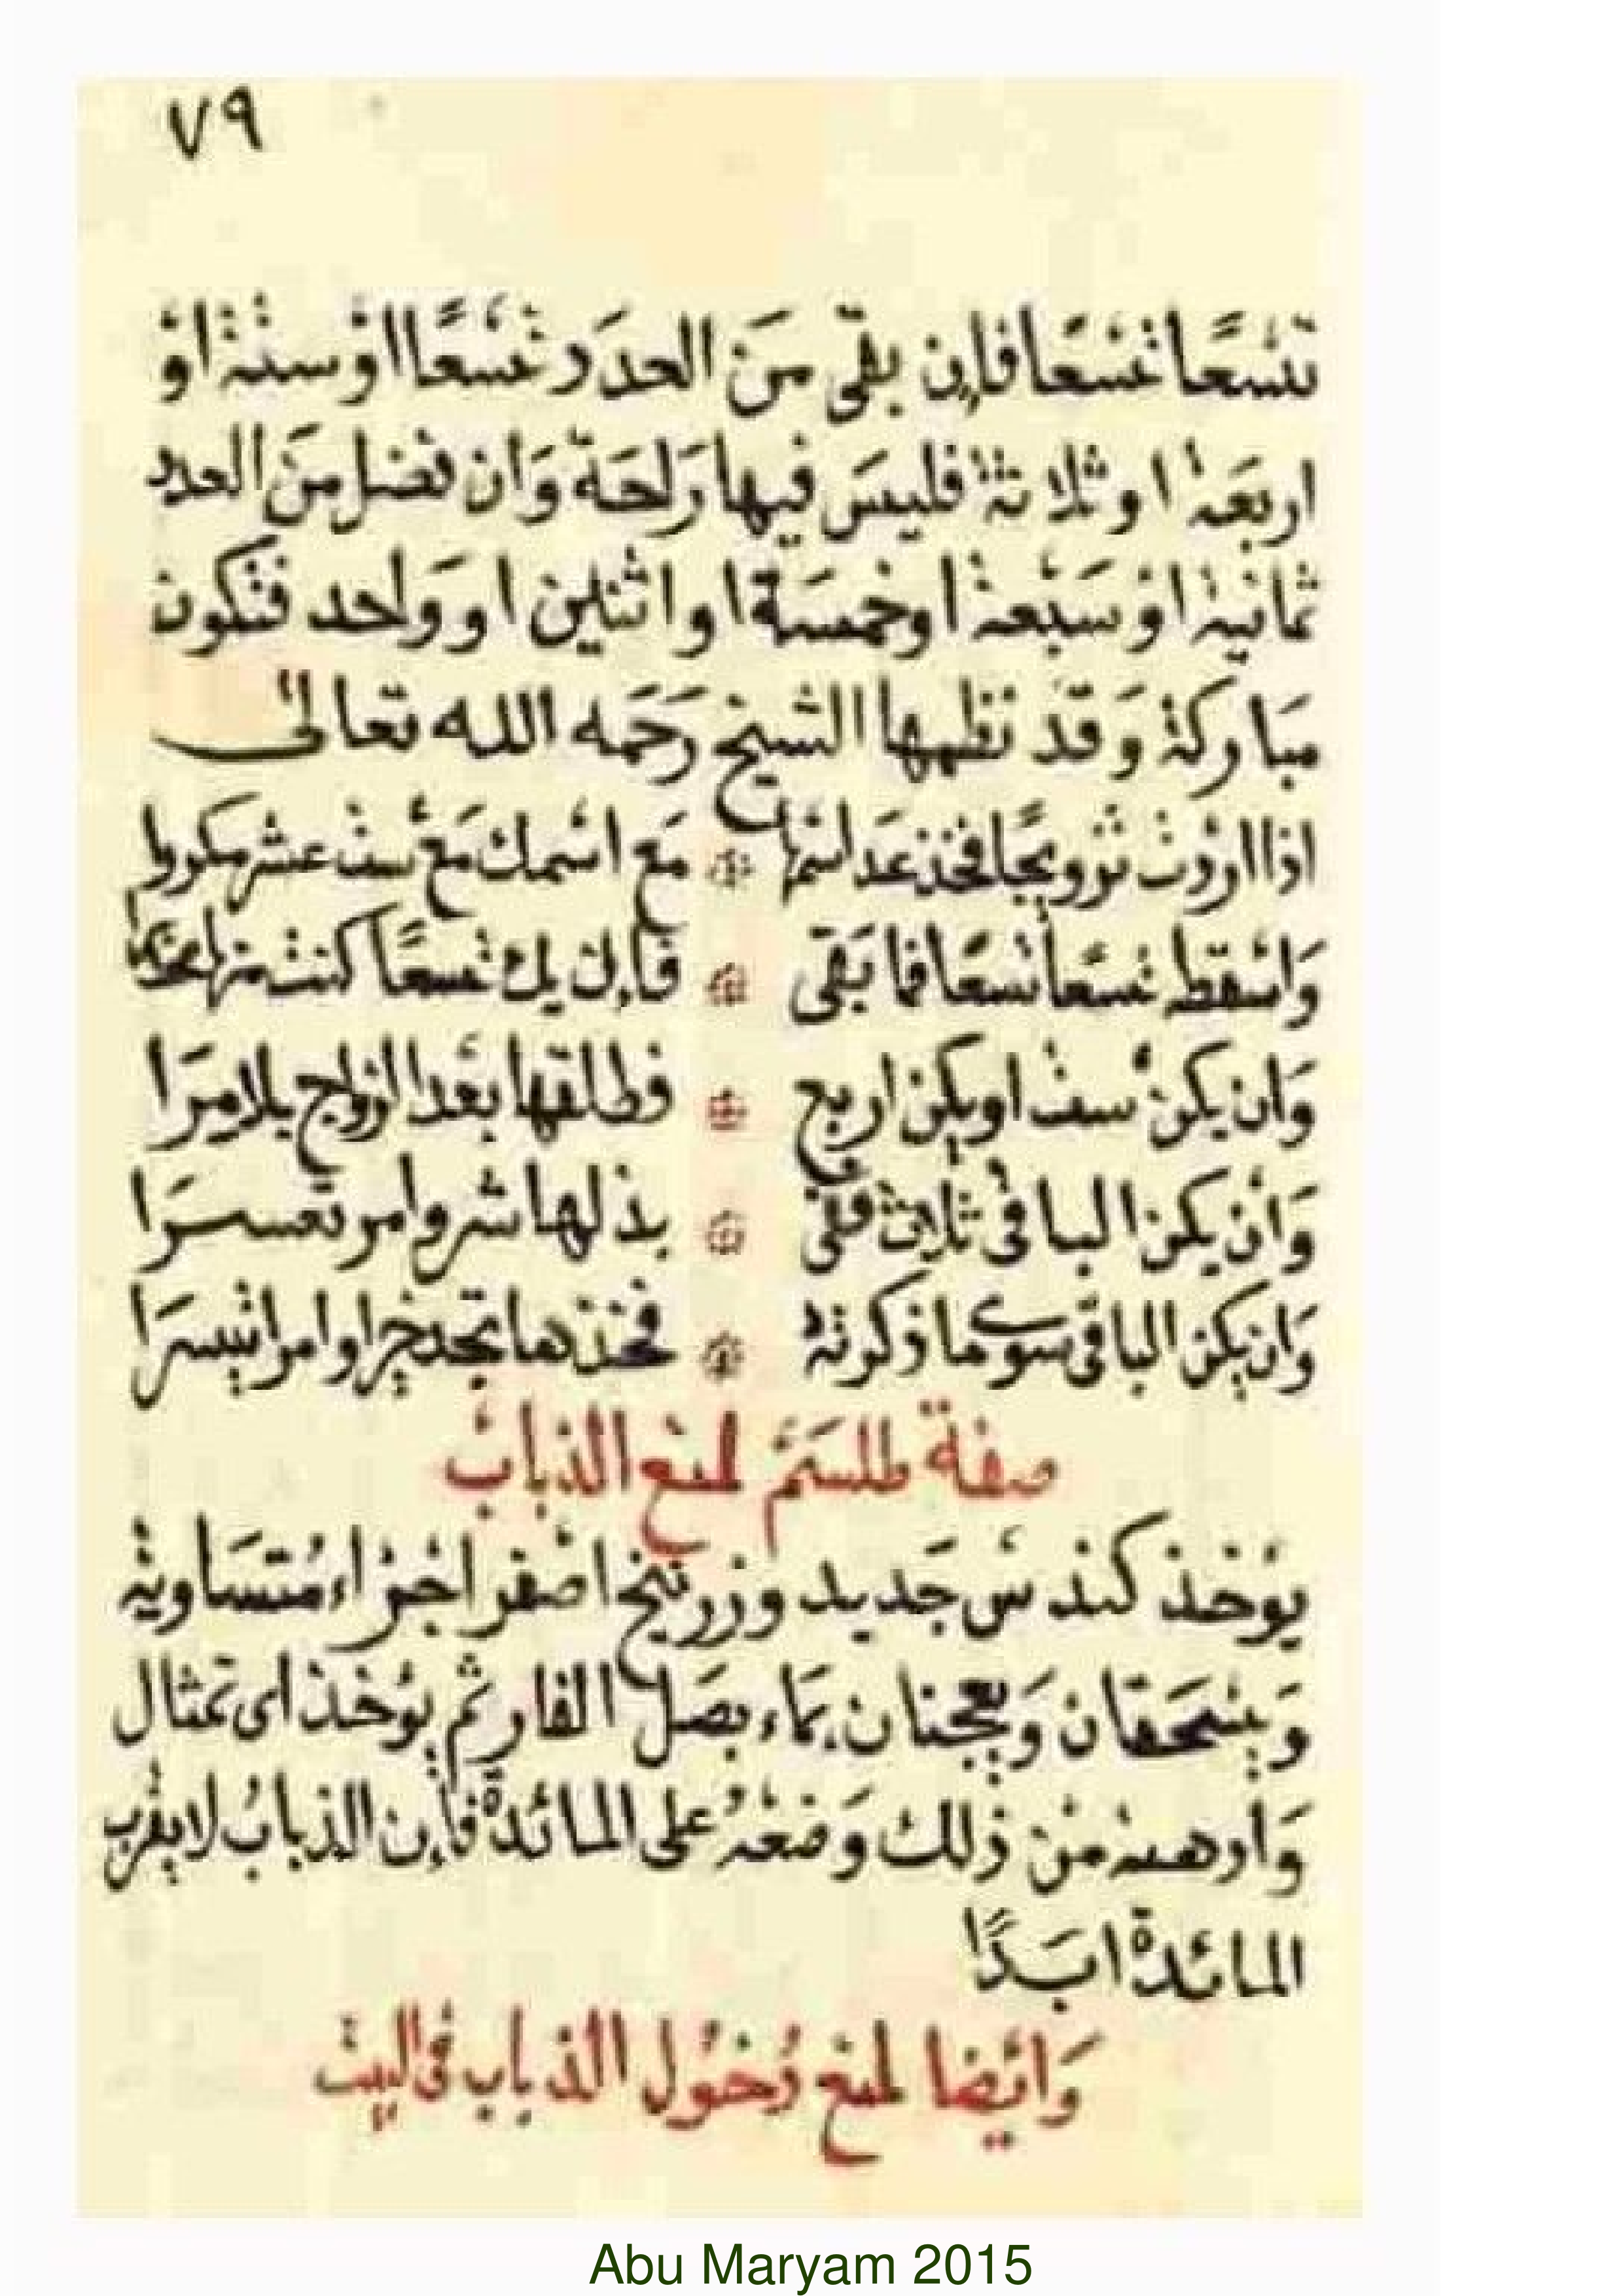 ٧٩
تسعًا تسعًا فإن بقى مَن العدَد تسعًا اوْ ستة اوْ
اربعَة او ثلاثة فليسَ فيها رَاحَة وَان فضل منَ العدد
ثمانية اوْ سَبعة او خمسَة او اثنين او وَاحد فتكون
مبَاركة وَقد نظمها الشيخ رَحمَه الله تعالى
اذا اردْت تزويجًا فخذ عَد اسْمها مَع اسْمك مَعْ ست عشر مكررا
وَاسْقط تسعًا تسعًا فما بَقى فإن يك تسعًا كنت منها
وَان يكن ست او يكن اربع فطلقها بَعْد الزواج بلا مرَا
وَان يكن الباقى ثلاث بذلها شر وامر تعسرَا
وَان يكن الباقى سوى ما ذكرته فخذها تجد خيرا وامرا تيسرَا
صفة طلسَم لمنع الذباب
يوْخذ كندس جَديد وزرنيخ اصْفر اجزاء مُتسَاوية
وَيسْحَقان وَيعجنان بمَاء بصَل الفار ثم يوْخذ اى تمثال
وَادهنه منْ ذلك وَضعْهُ على المائدة فإن الذبابُ لا يقرب
المائدة ابَدًا
وَايْضا لمنع دُخوُل الذباب فى البيت
Abu Maryam 2015